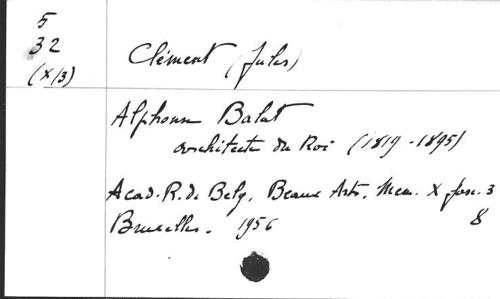 5
32
(X/3)
Clément (Jules)
Alphonse Balat
architecte du Roi (1819-1895)
Acad. R. de Belg. Beaux Arts. Mem. X fasc. 3
Bruxelles. 1956
8